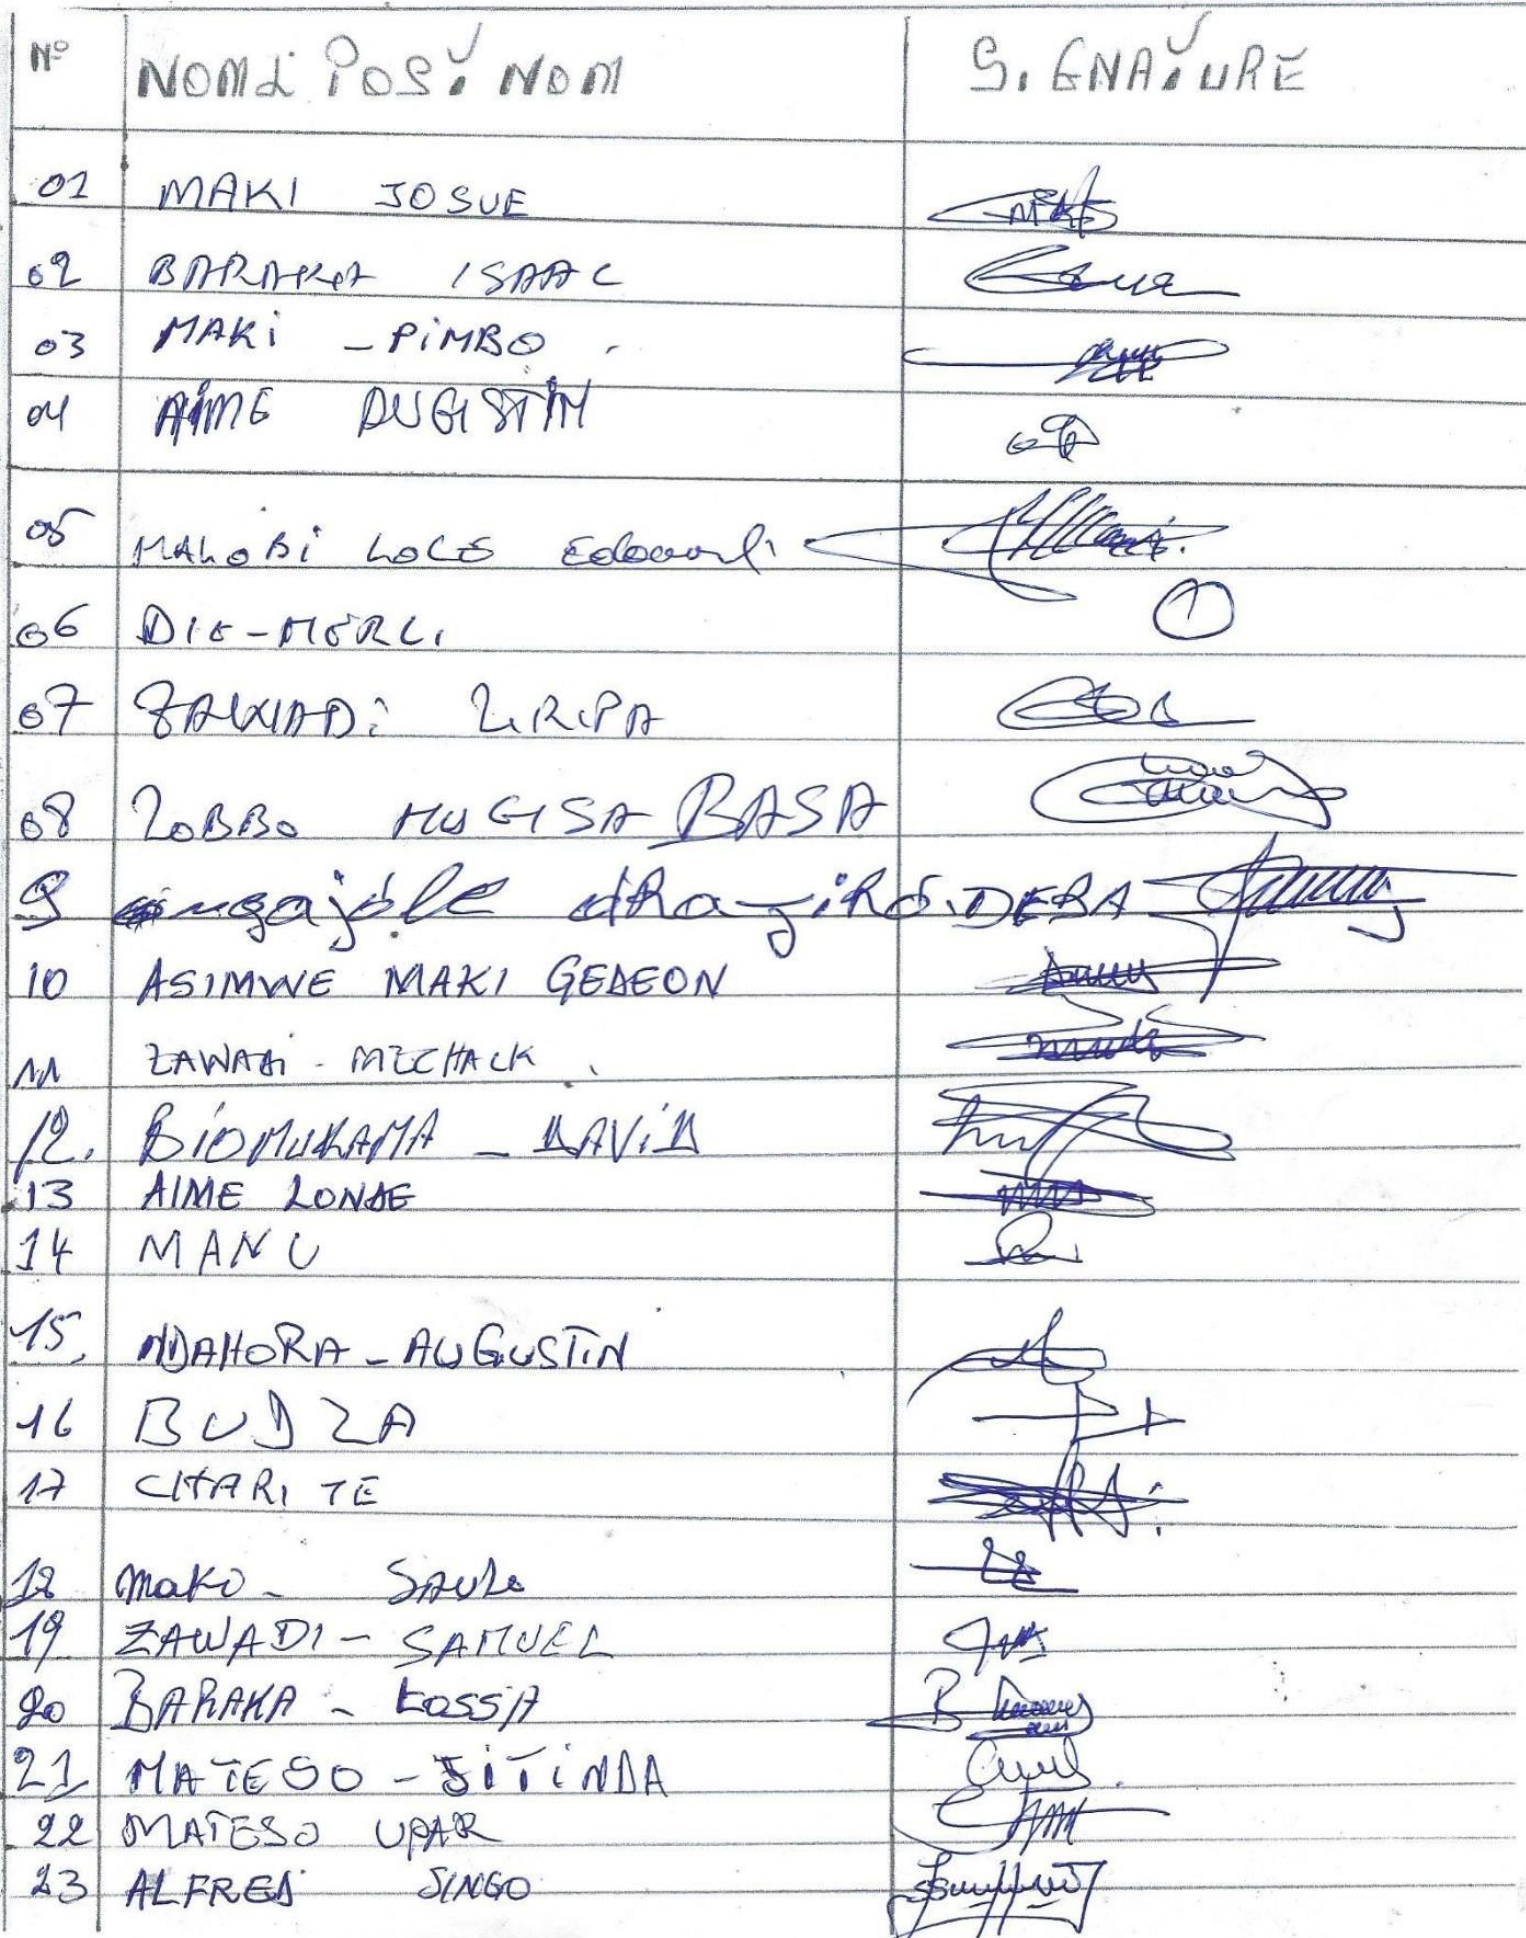 N° NOM & POST NOM SIGNATURE
01 MAKI JOSUE
02 BARAKA ISAAC
03 MAKi - PiMBO
04 AIME
05 MALOBi LOLE Edouard
06 DIE-MERCI
07 ZAWADi
08 ZOBBO MUGISA BASA
9 DEBA
10 ASIMWE MAKI GEDEON
11 ZAWADi - MECHACK
12. BiOMUKAMA - DAViD
13 AIME LONDE
14 MANU
15. NDAHORA - AUGUSTiN
16 BUDZA
17 CHARITE
18 MaKO -
19 ZAWADI - SAMUEL
20 BARAKA - LOSSA
21 MATESO - JiTiNDA
22 MATESO UPAR
23 ALFRED SINGO